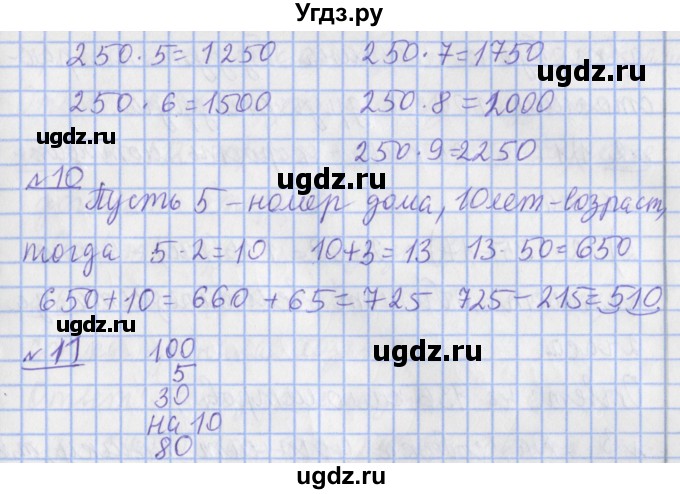 Угдз.ру
250·5=1250 250·7=1750
ugdz.ru
250·6=1500 250·8=2000
ugdz.ru
ugdz.ru
250·9=2250
№10
Пусть 5 – номер дома, 10 лет – возраст,
ugdz.ru
тогда 5·2=10 10+3=13 13·50=650
ugdz.ru
650+10=660+65=725 725-215=510
ugdz.ru
№11 100
ugdz.ru
5
30
на 10
ugdz.ru
80
ugdz.ru